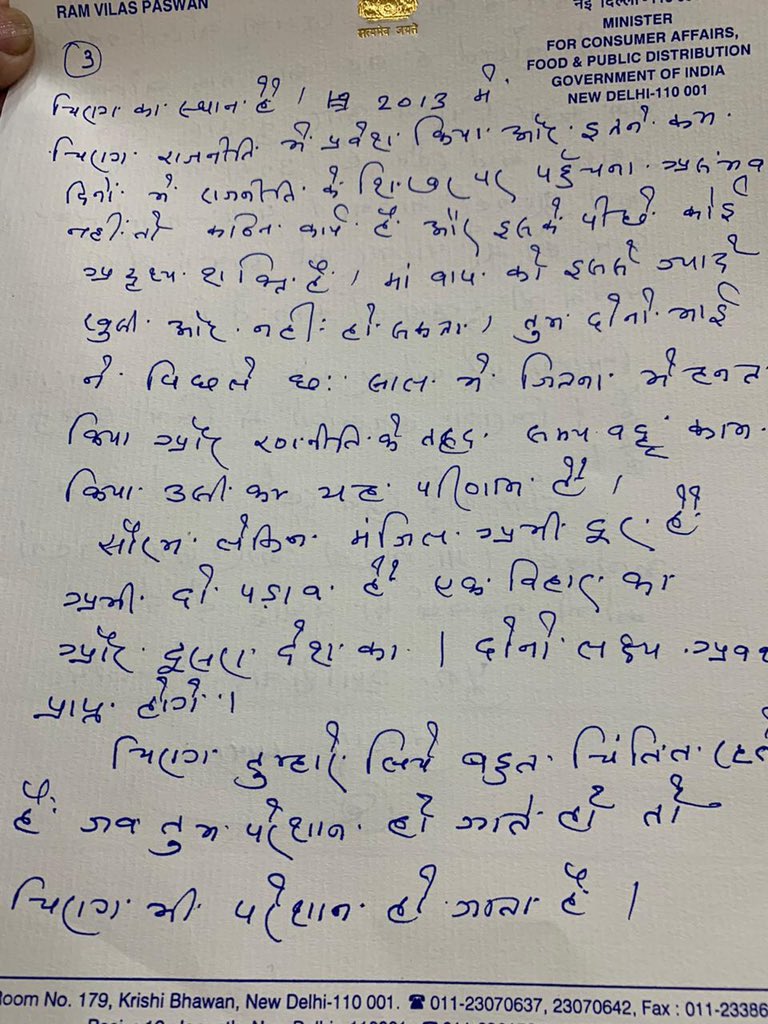 RAM VILAS PASWAN
सत्यमेव जयते
नई दिल्ली-110
MINISTER
FOR CONSUMER AFFAIRS,
FOOD & PUBLIC DISTRIBUTION
GOVERNMENT OF INDIA
NEW DELHI-110 001
3
चिराग का स्थान है । 2013 में
चिराग राजनीति में प्रवेश किया और इतने कम
दिनों में राजनीति के शिखर पर पहुँचना असंभव
नहीं तो कठिन कार्य है और इसके पीछे कोई
अदृश्य शक्ति है । मां बाप को इससे ज्यादे
खुशी और नहीं हो सकता । तुम दोनों भाई
ने पिछले छः साल में जितना मेहनत
किया और रणनीति के तहद समय वद्ध काम
किया उसी का यह परिणाम है ।
सौरभ लेकिन मंजिल अभी दूर है
अभी दो पड़ाव है एक बिहार का
और दूसरा देश का । दोनों लक्ष्य
प्राप्त होंगे ।
चिराग तुम्हारे लिये बहुत चिंतित रहते
हैं जब तुम परेशान हो जाते हो तो
चिराग भी परेशान हो जाता है ।
Room No. 179, Krishi Bhawan, New Delhi-110 001. ☎ 011-23070637, 23070642, Fax : 011-23386